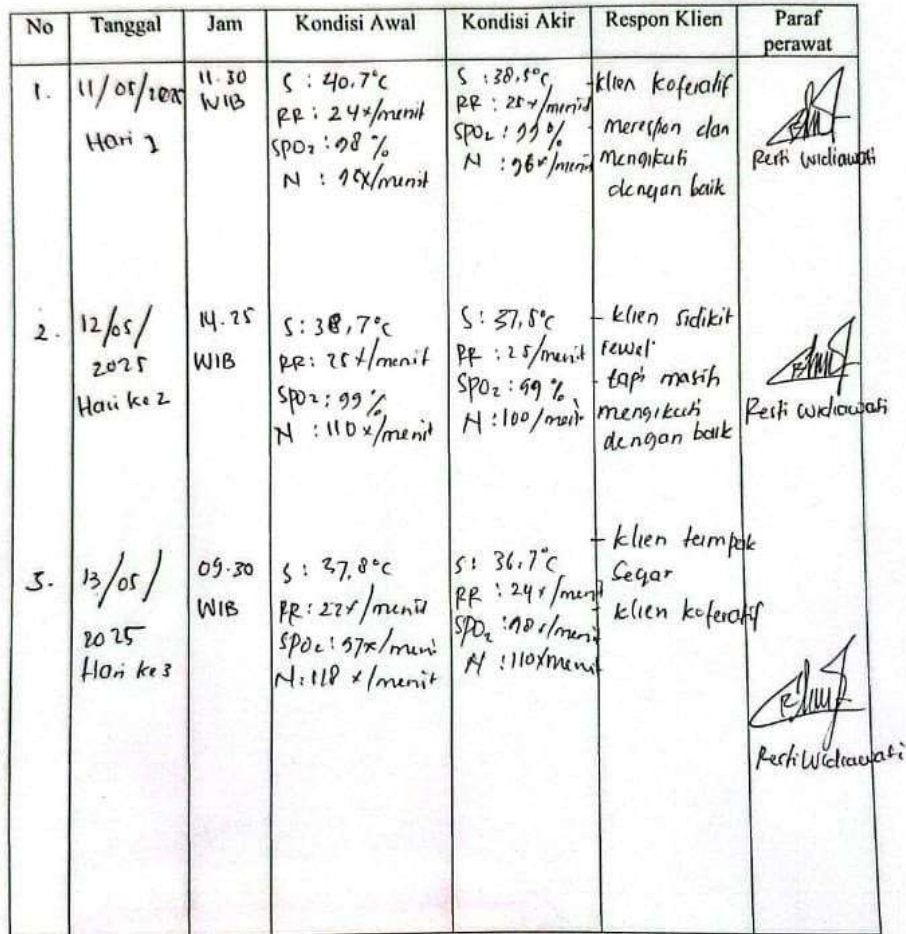 No Tanggal Jam Kondisi Awal Kondisi Akir Respon Klien Paraf perawat
1.
11/05/2025
Hari 1
11.30
WIB
S : 40,7°C
RR : 24x/menit
SPO2 : 98 %
N : 98x/menit
S : 38,5°C
RR : 25x/menit
SPO2 : 99 %
N : 96x/menit
- klien koferatif
merespon dan
mengikuti
dengan baik
Resti Widiawati
2.
12/05/
2025
Hari ke 2
14.25
WIB
S : 38,7°C
RR : 25x/menit
SPO2 : 99 %
N : 110 x/menit
S : 37,5°C
RR : 25/menit
SPO2 : 99 %
N : 100/menit
- klien sidikit
rewel
- tapi masih
mengikuti
dengan baik
Resti Widiawati
3.
13/05/
2025
Hari ke 3
09.30
WIB
S : 37,8°C
RR : 22x/menit
SPO2 : 97x/menit
N : 118 x/menit
S : 36,7°C
RR : 24x/menit
SPO2 : 98x/menit
N : 110x/menit
- klien tampak
Segar
- klien koferatif
Resti Widiawati